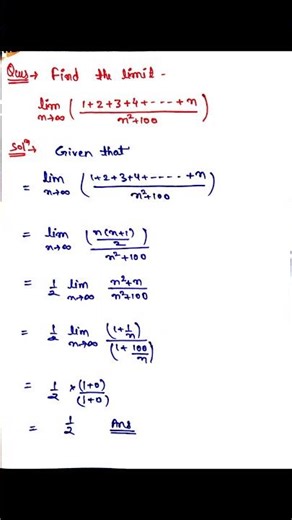 Ques→ Find the limit -
lim n→∞ ( 1+2+3+4+----+n / n²+100 )
Solⁿ→ Given that
= lim n→∞ ( 1+2+3+4+----+n / n²+100 )
= lim n→∞ ( n(n+1) / 2 ) / n²+100
= 1/2 lim n→∞ n²+n / n²+100
= 1/2 lim n→∞ (1+1/n) / (1+100/n)
= 1/2 × (1+0) / (1+0)
= 1/2 Ans